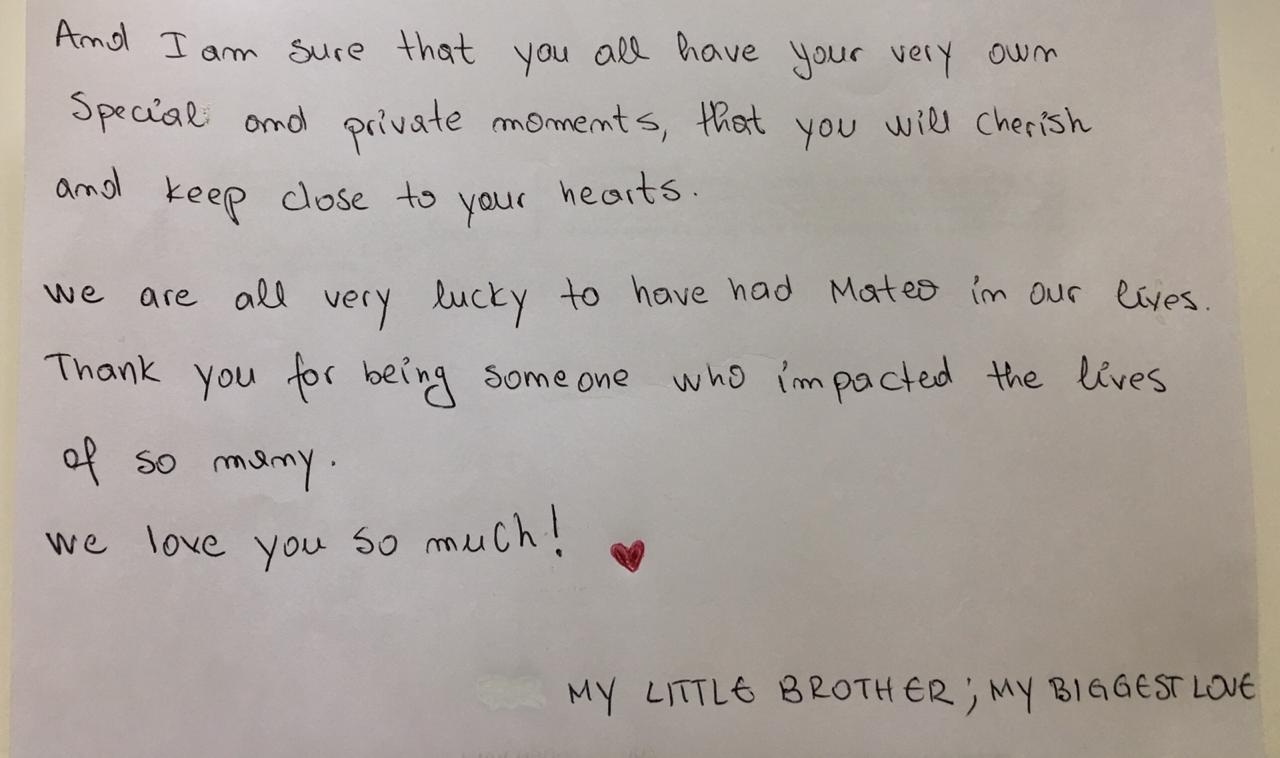 And I am sure that you all have your very own
Special and private moments, that you will cherish
and keep close to your hearts.
We are all very lucky to have had Mateo in our lives.
Thank you for being someone who impacted the lives
of so many.
We love you so much!
MY LITTLE BROTHER; MY BIGGEST LOVE